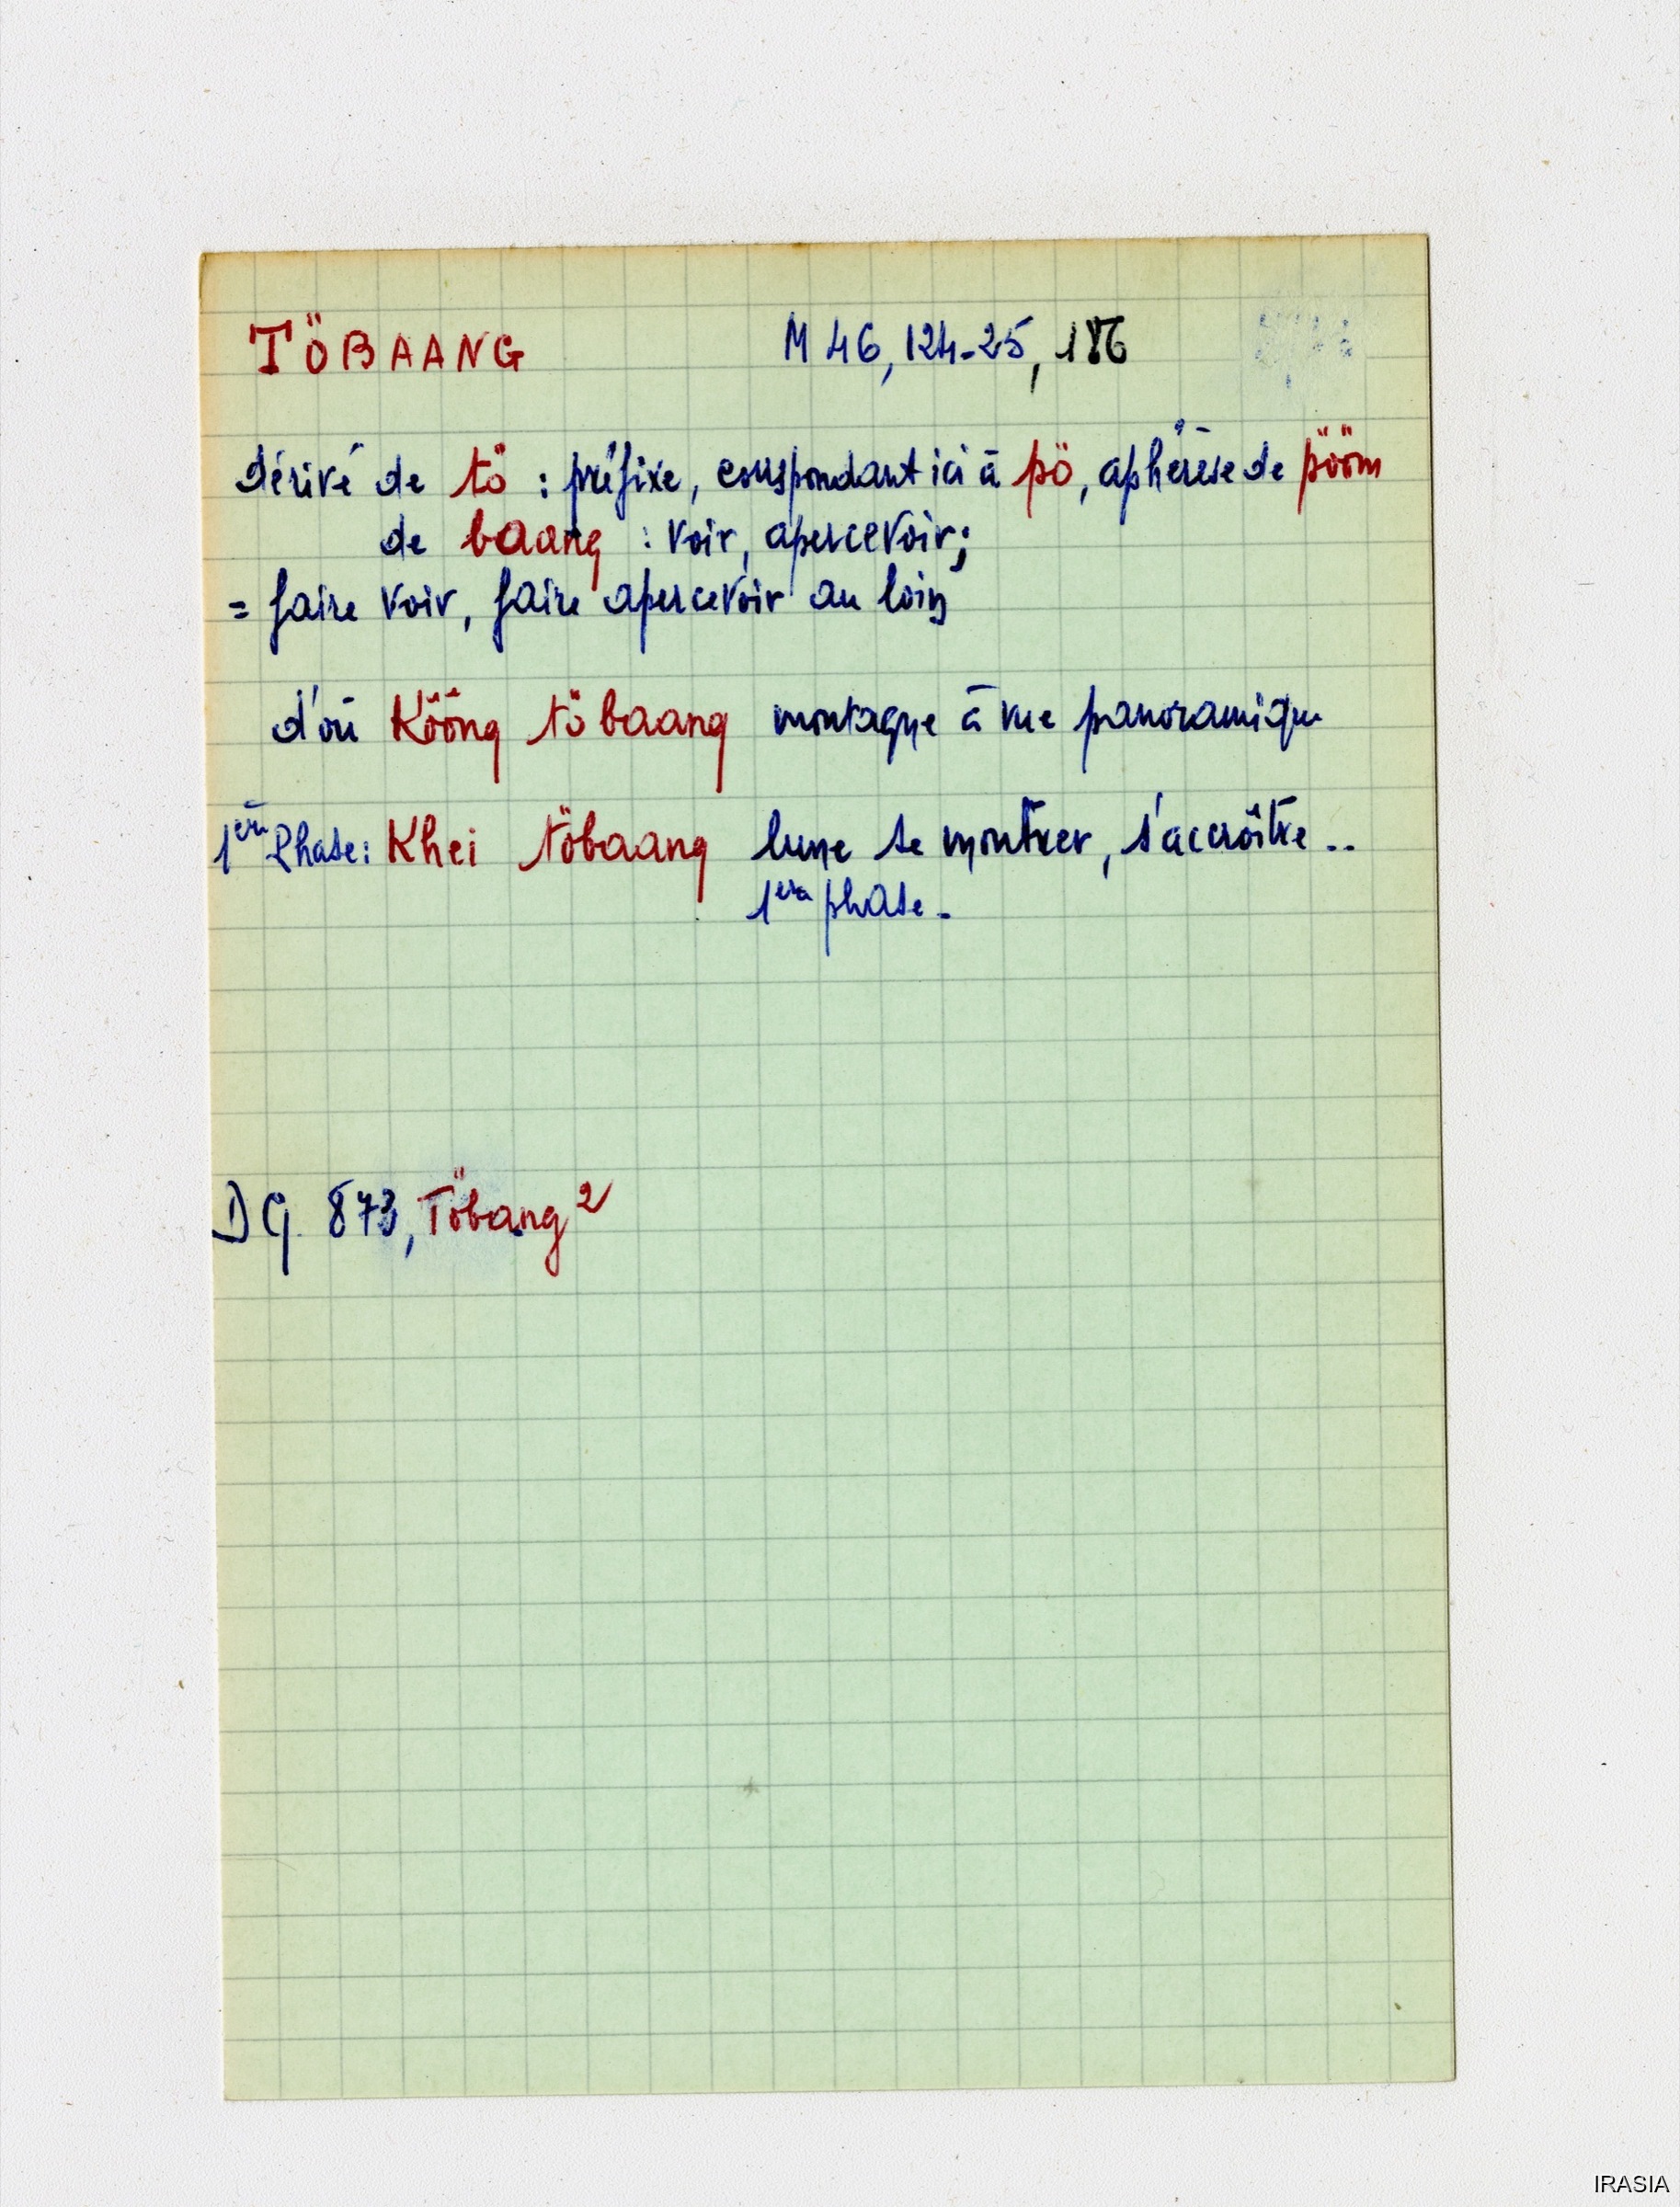 TÖBAANG M 46, 124-25, 186
dérivé de tö : préfixe, correspondant ici à pö, aphérèse de pööm
de baang : voir, apercevoir;
= faire voir, faire apercevoir au loin
d'où Kööng töbaang montagne à vue panoramique
1ère Phase: Khei töbaang lune se montrer, s'accroître..
1ère phase.
DG. 873, Töbang 2
IRASIA